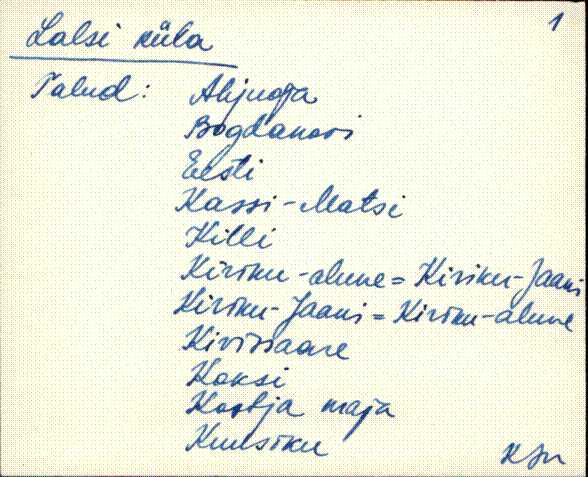 1
Lalsi küla
Talud: Ahjuoja
Bogdanovi
Eesti
Kassi-Matsi
Killi
Kiriku-alune = Kiriku-Jaani
Kiriku-Jaani = Kiriku-alune
Kivisaare
Koksi
Kostja maja
Kuusiku